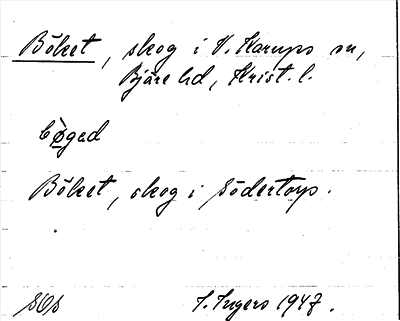 Böket, skog i V. Karups sn,
Bjäre hd, Krist. l.
bø̀gad
Böket, skog i Södertorp.
SOS
I. Ingers 1947.